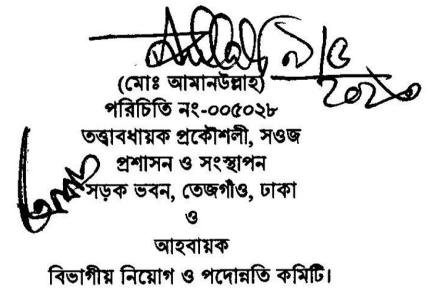 (মোঃ আমানউল্লাহ)
পরিচিতি নং-০০৫০২৮
তত্ত্বাবধায়ক প্রকৌশলী, সওজ
প্রশাসন ও সংস্থাপন
সড়ক ভবন, তেজগাঁও, ঢাকা
ও
আহবায়ক
বিভাগীয় নিয়োগ ও পদোন্নতি কমিটি।